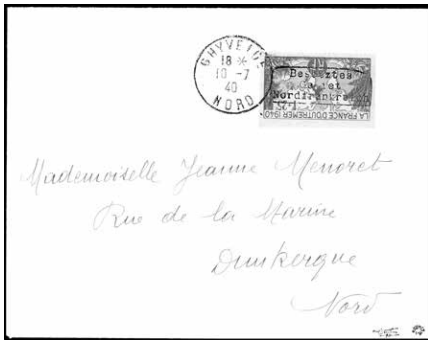 GHYVELDE
18 *
10 -7
40
NORD
Besetztes
Gebiet
Nordfrankreich
LA FRANCE D'OUTREMER 1940
Mademoiselle Jeanne Menoret
Rue de la Marine
Dunkerque
Nord